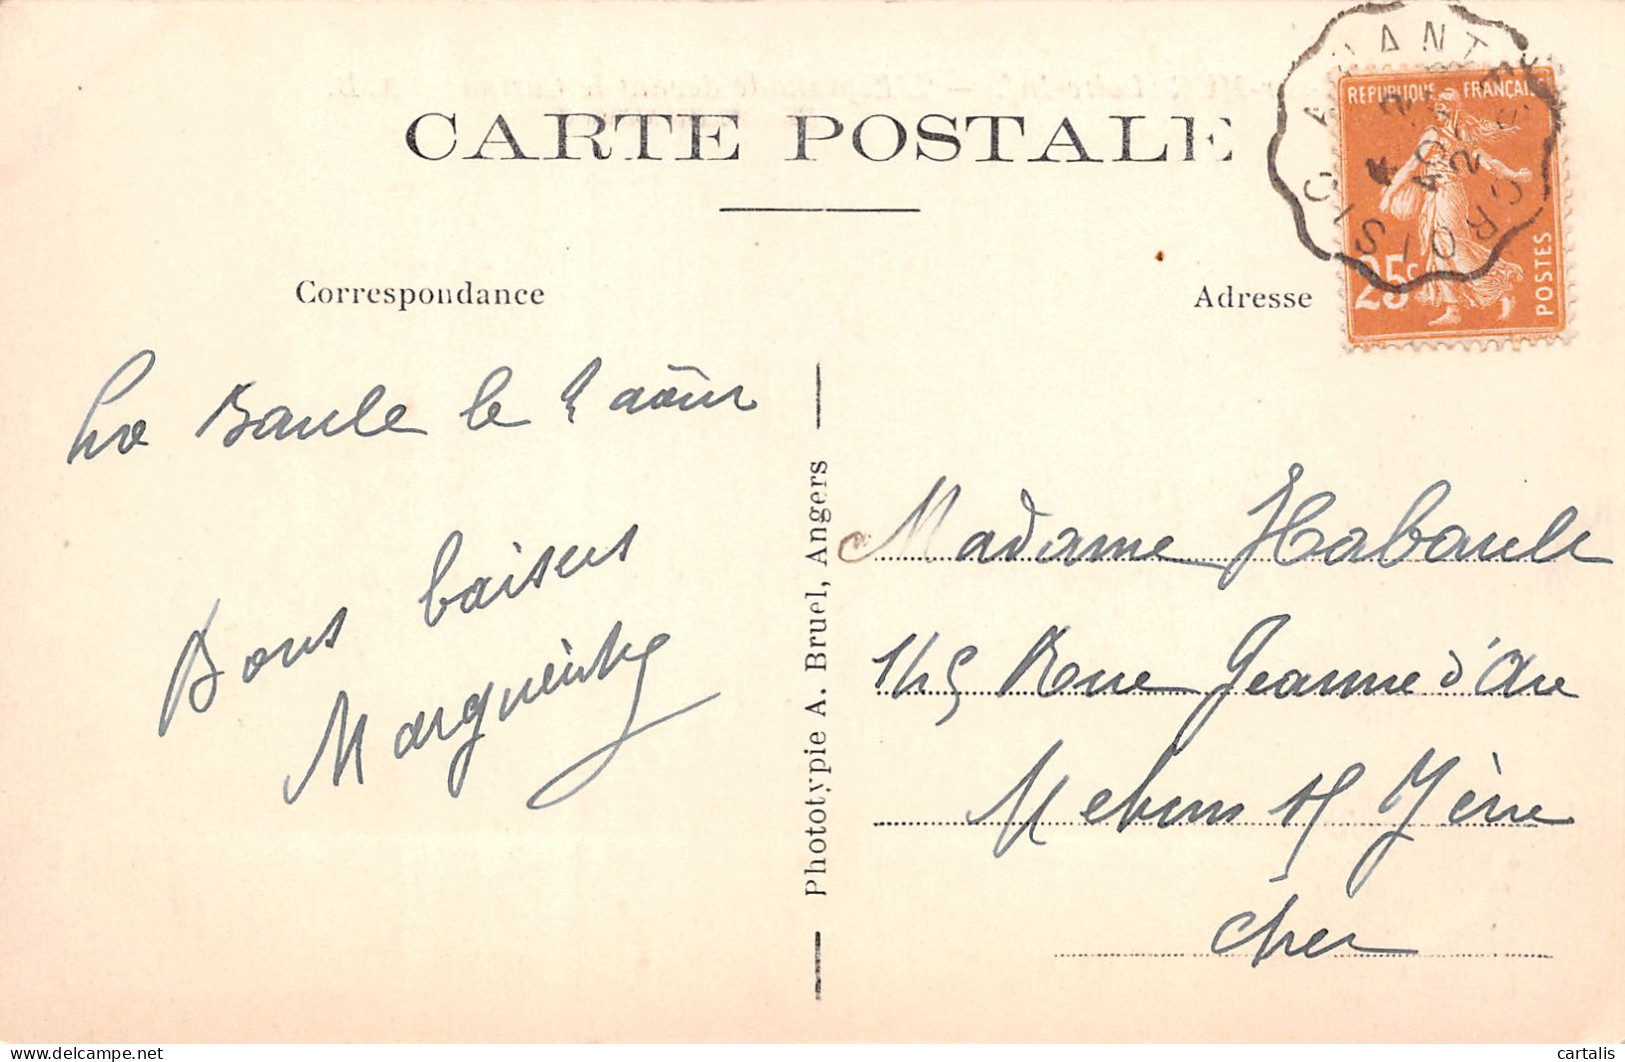 CARTE POSTALE
REPUBLIQUE FRANÇAISE
25c
POSTES
Correspondance
Adresse
La Baule le 2 août
Bons baisers
Marguerite
Phototypie A. Bruel, Angers
Madame Habault
145 Rue Jeanne d'Arc
Mehun s/ Yèvre
Cher
delcampe.net
cartalis